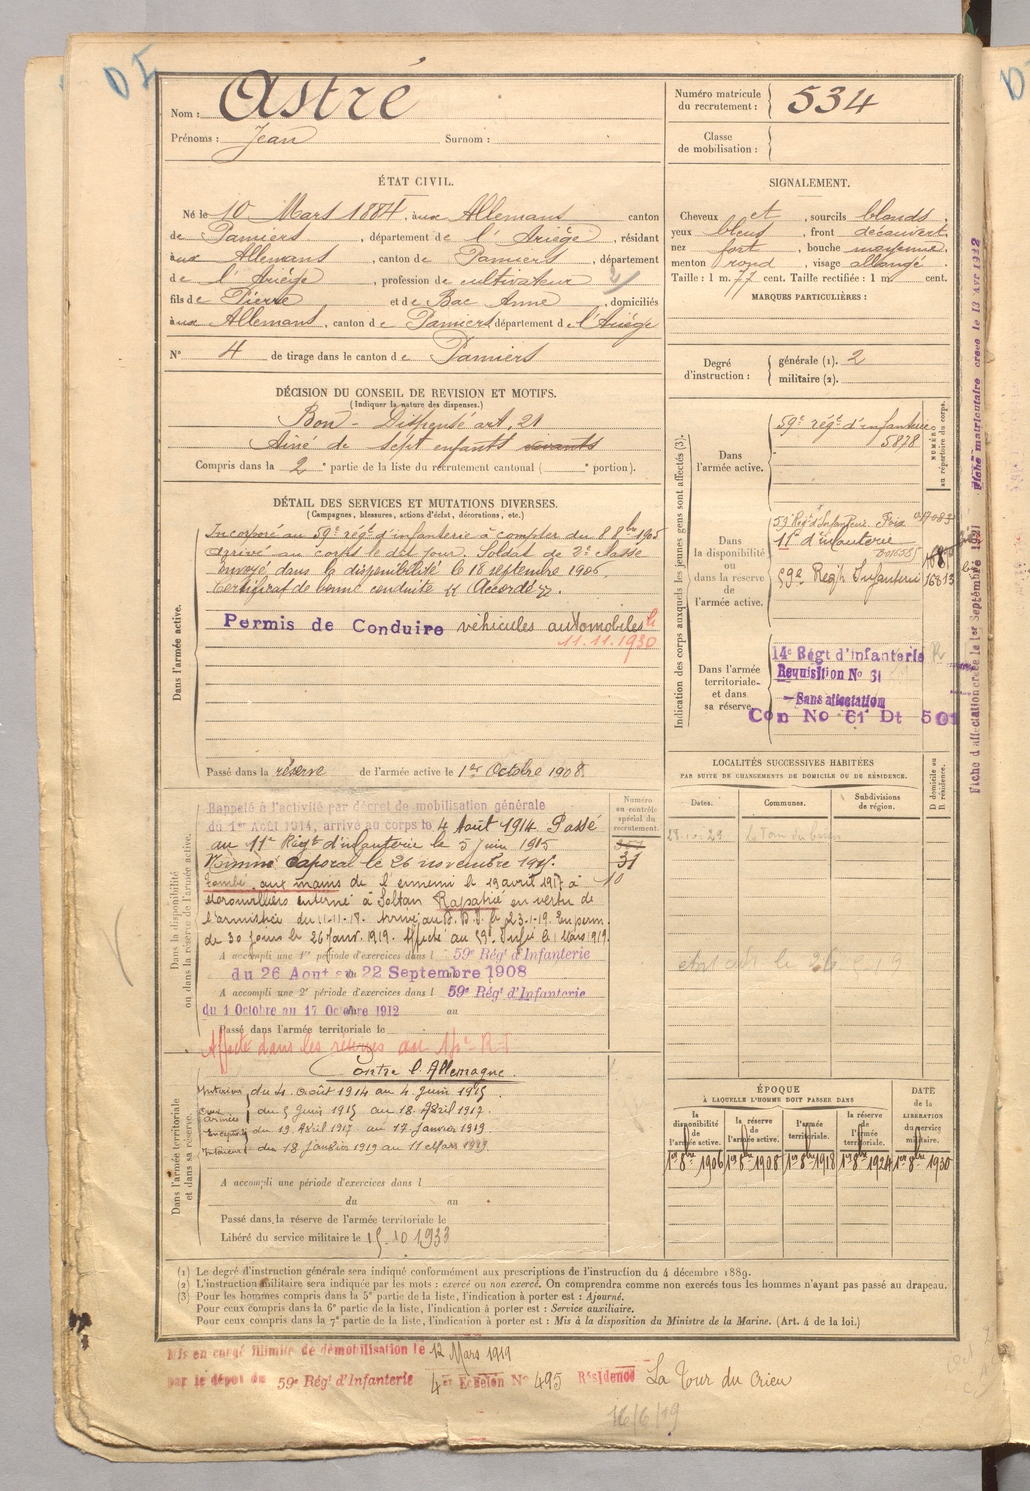 Nom : Astré
Prénoms : Jean Surnom :
Numéro matricule du recrutement : 534
Classe de mobilisation :
ÉTAT CIVIL.
Né le 10 Mars 1884, aux Allemans canton
de Pamiers, département de l'Ariège, résidant
aux Allemans, canton de Pamiers, département
de l'Ariège, profession de cultivateur
fils de Pierre et de Bac Anne, domiciliés
aux Allemans, canton de Pamiers département de l'Ariège
N° 4 de tirage dans le canton de Pamiers
SIGNALEMENT.
Cheveux et, sourcils blonds.
yeux bleus, front découvert.
nez fort, bouche moyenne.
menton rond, visage allongé.
Taille : 1 m. 77 cent. Taille rectifiée : 1 m. cent.
MARQUES PARTICULIÈRES :
Degré d'instruction : générale (1). 2
militaire (2).
DÉCISION DU CONSEIL DE REVISION ET MOTIFS.
(Indiquer la nature des dispenses.)
Bon - Dispensé art. 21
Aîné de sept enfants vivants
Compris dans la 2e partie de la liste du recrutement cantonal ( e portion).
DÉTAIL DES SERVICES ET MUTATIONS DIVERSES.
(Campagnes, blessures, actions d'éclat, décorations, etc.)
Dans l'armée active.
Incorporé au 59e régt d'infanterie à compter du 8 8bre 1905
Arrivé au corps le dit jour. Soldat de 2e classe
Envoyé dans la disponibilité le 18 septembre 1906.
Certificat de bonne conduite "Accordé".
Permis de Conduire véhicules automobiles le
11.11.1930
Passé dans la réserve de l'armée active le 1er Octobre 1908
Dans la disponibilité ou dans la réserve de l'armée active.
Numéro au contrôle spécial du recrutement.
31
10
Rappelé à l'activité par décret de mobilisation générale
du 1er Août 1914, arrivé au corps le 4 Août 1914. Passé
au 11e Régt d'infanterie le 5 juin 1915
Nommé Caporal le 26 novembre 1915.
Tombé aux mains de l'ennemi le 19 avril 1917 à
Moronvilliers interné à Soltau Rapatrié en vertu de
l'armistice du 11-11-18. Arrivé au le 23-1-19. En perm.
de 30 jours le 26 Janv. 1919. Affecté au 59e Infie le 1 Mars 1919.
A accompli une 1re période d'exercices dans l 59e Régt d'Infanterie
du 26 Aout au 22 Septembre 1908
A accompli une 2e période d'exercices dans l 59e Régt d'Infanterie
du 1 Octobre au 17 Octobre 1912 au
Passé dans l'armée territoriale le
Affecté dans les réserves au 14e R I
Dans l'armée territoriale et dans sa réserve.
Contre l'Allemagne.
Intérieur, du 4 Août 1914 au 4 Juin 1915.
Aux armées, du 5 Juin 1915 au 18 Avril 1917.
En captivité du 19 Avril 1917 au 17 Janvier 1919.
Intérieur du 18 Janvier 1919 au 11 Mars 1919.
A accompli une période d'exercices dans l
du au
Passé dans la réserve de l'armée territoriale le
Libéré du service militaire le 15.10 1933
Indication des corps auxquels les jeunes gens sont affectés (3).
NUMÉRO au répertoire du corps.
Dans l'armée active.
59e régt d'infanterie
5878
Dans la disponibilité ou dans la réserve de l'armée active.
59 Régt d'Infanterie Foix
11e d'infanterie
59e Regt Infanterie
Dans l'armée territoriale et dans sa réserve.
14e Régt d'infanterie
Requisition No 61
Sans affectation
Con No 61 Dt 501
Fiche d'affectation créée le 1er Septembre 1921
Fiche matriculaire créée le 13 Avr 1922
LOCALITÉS SUCCESSIVES HABITÉES
PAR SUITE DE CHANGEMENTS DE DOMICILE OU DE RÉSIDENCE.
Dates. Communes. Subdivisions de région. D domicile ou R résidence.
La Tour du Crieu
ÉPOQUE
À LAQUELLE L'HOMME DOIT PASSER DANS
la disponibilité de l'armée active. la réserve de l'armée active. l'armée territoriale. la réserve de l'armée territoriale. DATE de la LIBÉRATION du service militaire.
1er 8bre 1906 1er 8bre 1908 1er 8bre 1918 1er 8bre 1924 1er 8bre 1930
(1) Le degré d'instruction générale sera indiqué conformément aux prescriptions de l'instruction du 4 décembre 1889.
(2) L'instruction militaire sera indiquée par les mots : exercé ou non exercé. On comprendra comme non exercés tous les hommes n'ayant pas passé au drapeau.
(3) Pour les hommes compris dans la 5e partie de la liste, l'indication à porter est : Ajourné.
Pour ceux compris dans la 6e partie de la liste, l'indication à porter est : Service auxiliaire.
Pour ceux compris dans la 7e partie de la liste, l'indication à porter est : Mis à la disposition du Ministre de la Marine. (Art. 4 de la loi.)
Mis en congé illimité de démobilisation le 12 Mars 1919
par le dépôt du 59e Régt d'Infanterie 4e Echelon No 495 Résidence La Tour du Crieu
16/6/19